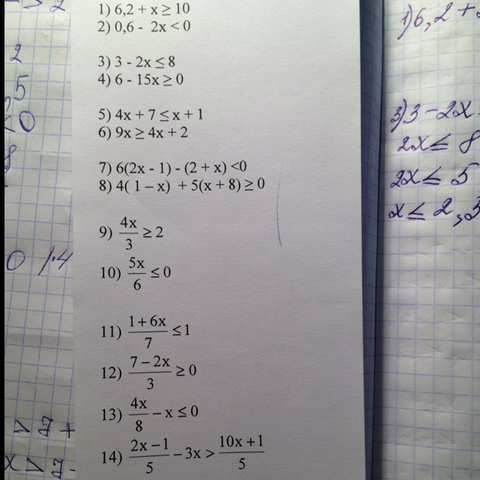 1) 6,2 + x ≥ 10
2) 0,6 - 2x < 0
3) 3 - 2x ≤ 8
4) 6 - 15x ≥ 0
5) 4x + 7 ≤ x + 1
6) 9x ≥ 4x + 2
7) 6(2x - 1) - (2 + x) <0
8) 4( 1 – x) + 5(x + 8) ≥ 0
9) 4x/3 ≥ 2
10) 5x/6 ≤ 0
11) (1 + 6x)/7 ≤ 1
12) (7 – 2x)/3 ≥ 0
13) 4x/8 – x ≤ 0
14) (2x – 1)/5 – 3x > (10x + 1)/5
1) 6,2 +
3) 3 - 2x
2x ≤ 8
2x ≤ 5
x ≤ 2,